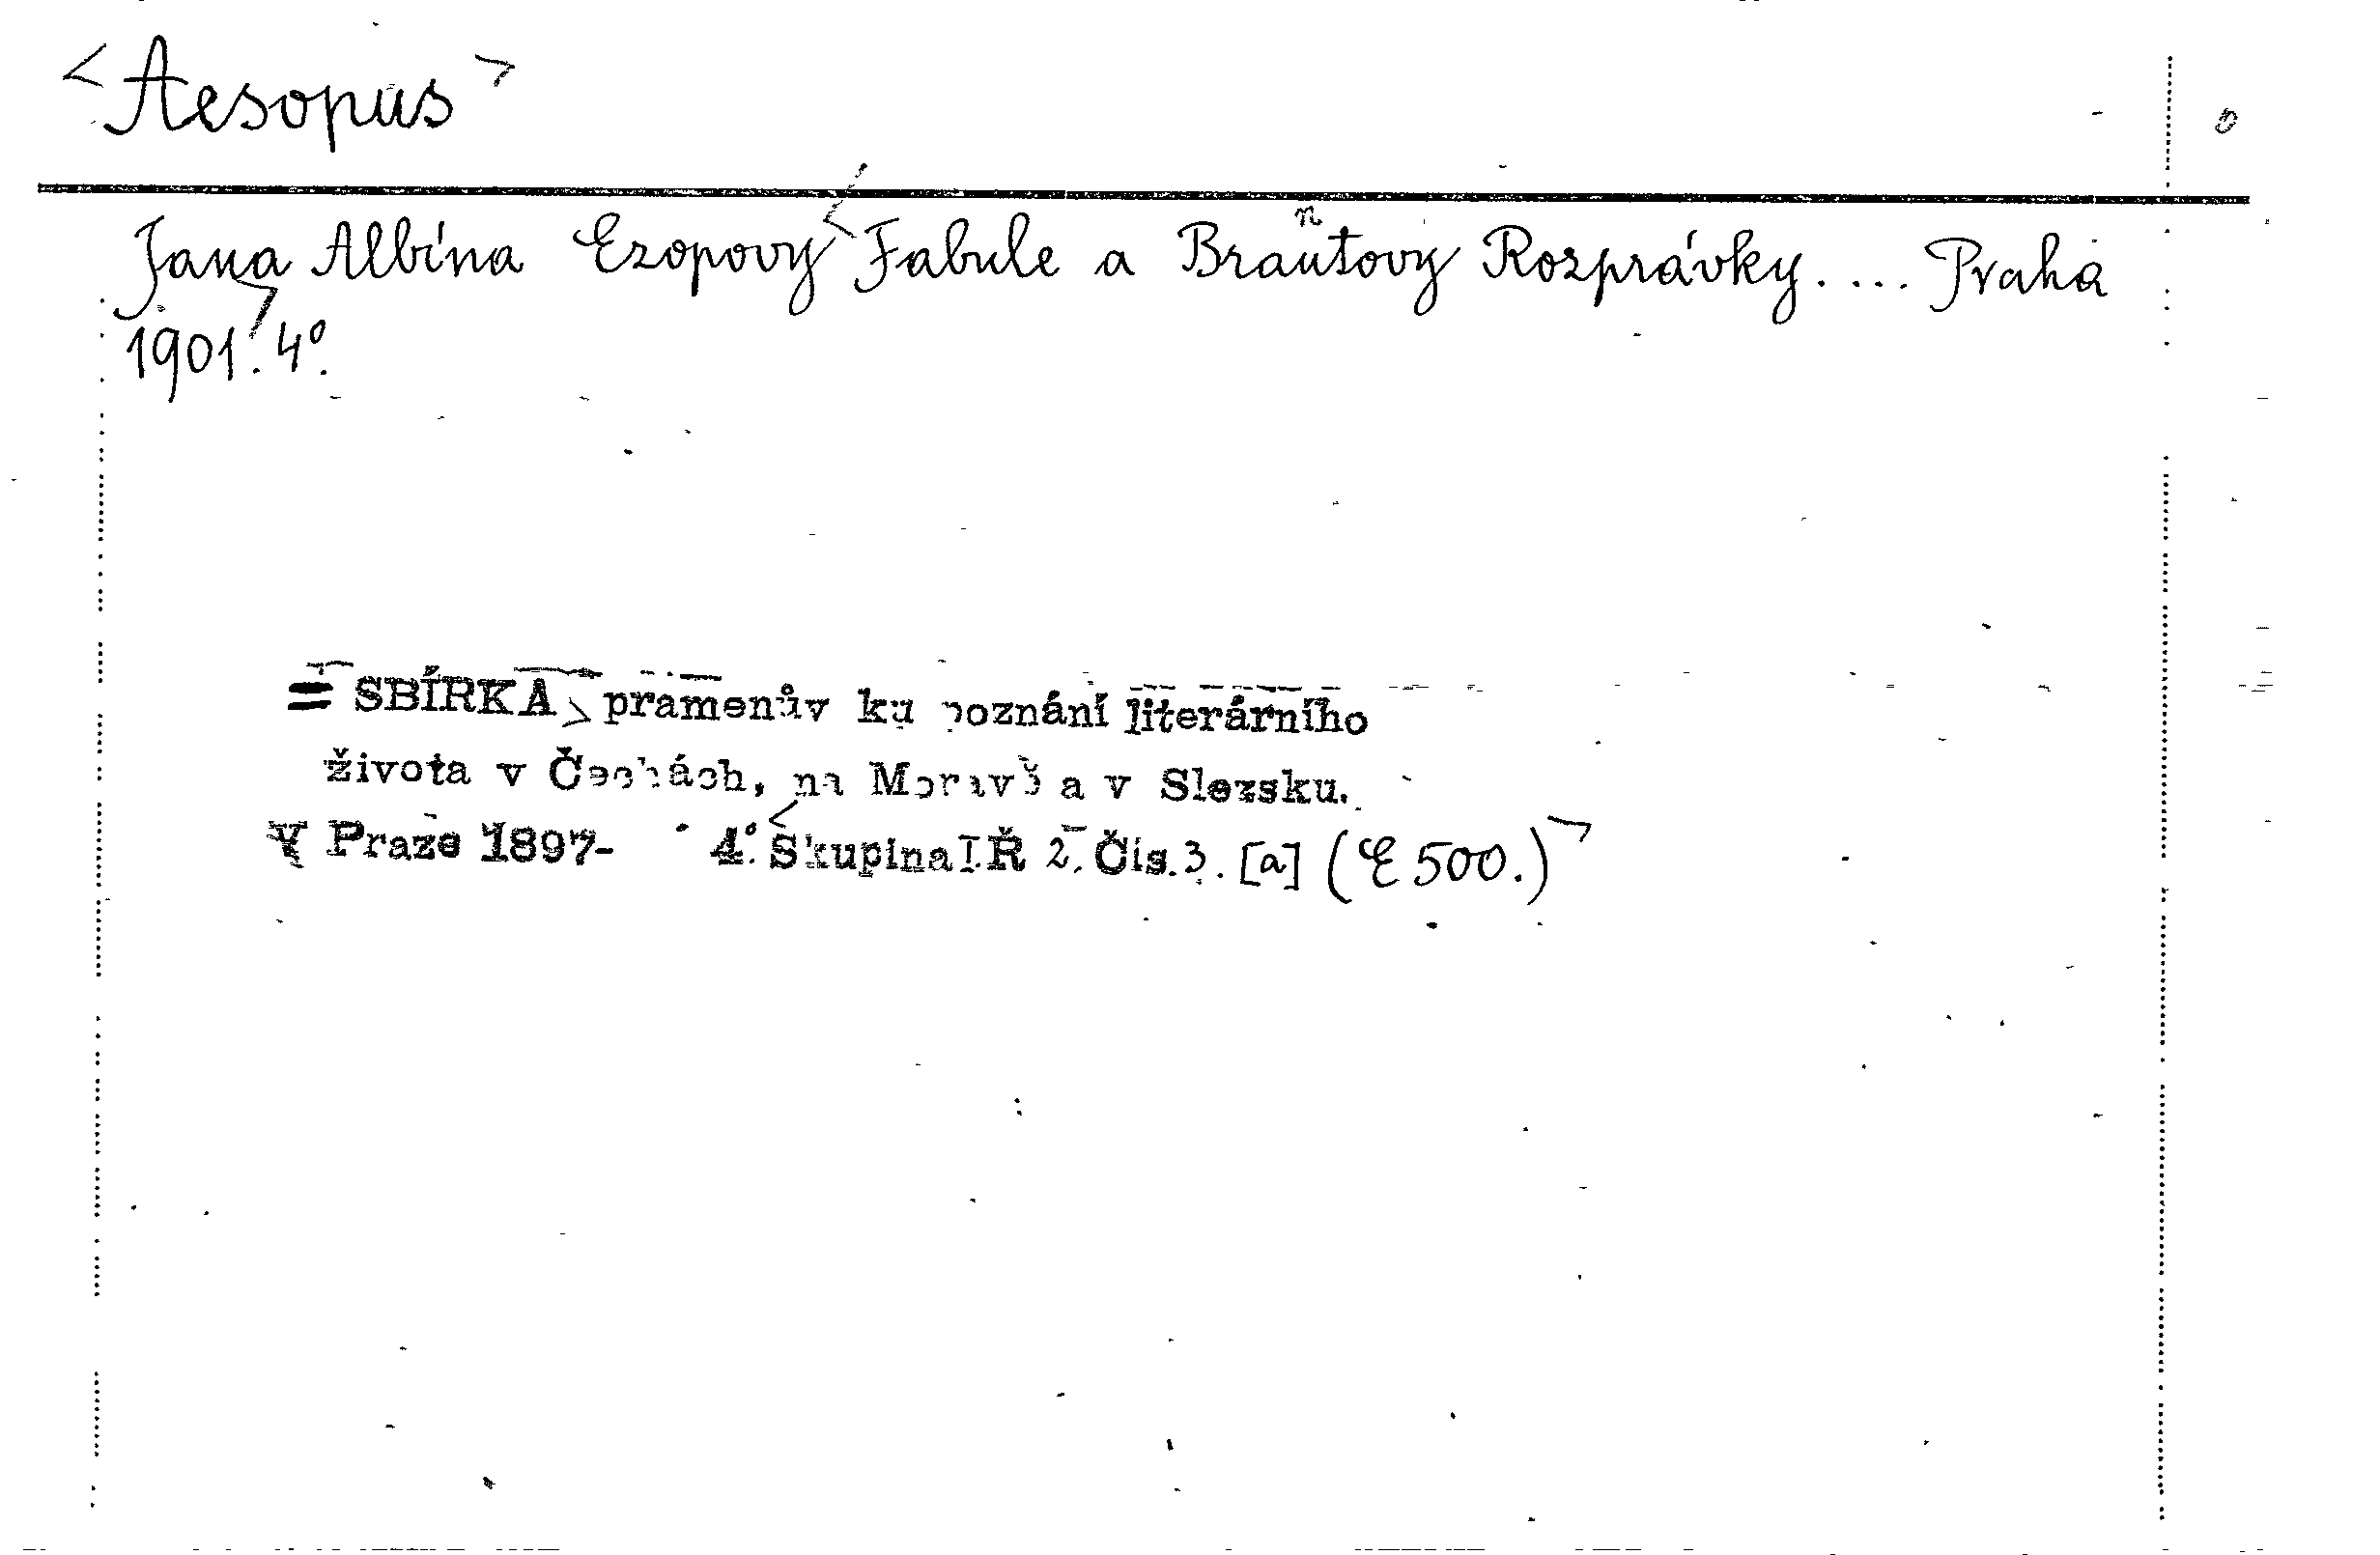 <Aesopus>
Jana Albína Ezopovy <Fabule a Brantovy Rozprávky.... Praha
1901.> 4°.
= SBÍRKA> pramenův ku poznání literárního
života v Čechách, na Moravě a v Slezsku.
V Praze 1897- 4°. <Skupina I. Ř 2. Čís. 3. [a] (E 500.)>